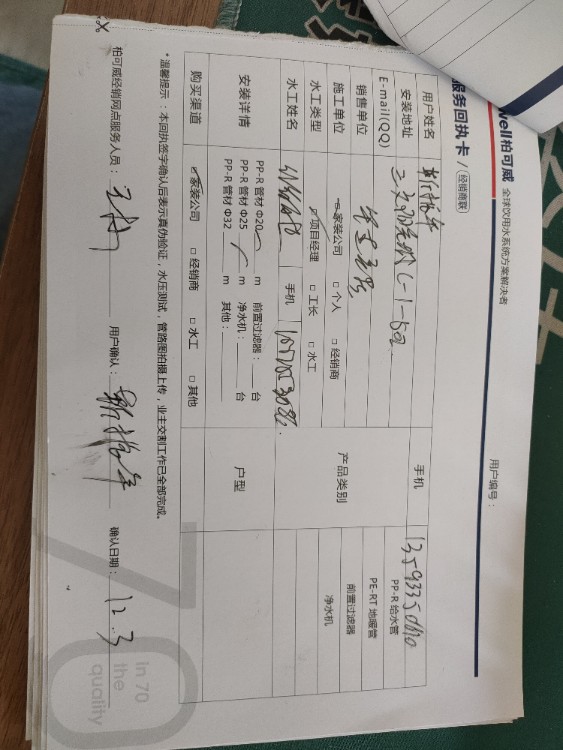 well柏可威 全球饮用水系统方案解决者
服务回执卡 / 经销商联
用户编号：
用户姓名
手机 13593350610
安装地址 C-1-502
产品类别 PP-R 给水管
E-mail(QQ)
PE-RT 地暖管
销售单位
前置过滤器
施工单位 家装公司 □ 个人 □ 经销商
净水机
水工类型 项目经理 □ 工长 □ 水工
水工姓名 手机
安装详情
PP-R 管材 Φ20 m 前置过滤器： 台
PP-R 管材 Φ25 m 净水机： 台
PP-R 管材 Φ32 m 其他：
户型
购买渠道 家装公司 □ 经销商 □ 水工 □ 其他
*温馨提示：本回执签字确认后表示真伪验证，水压测试，管路图拍摄上传，业主交割工作已全部完成。
柏可威经销网点服务人员： 用户确认： 确认日期：12.3
70
In 70
the
quality